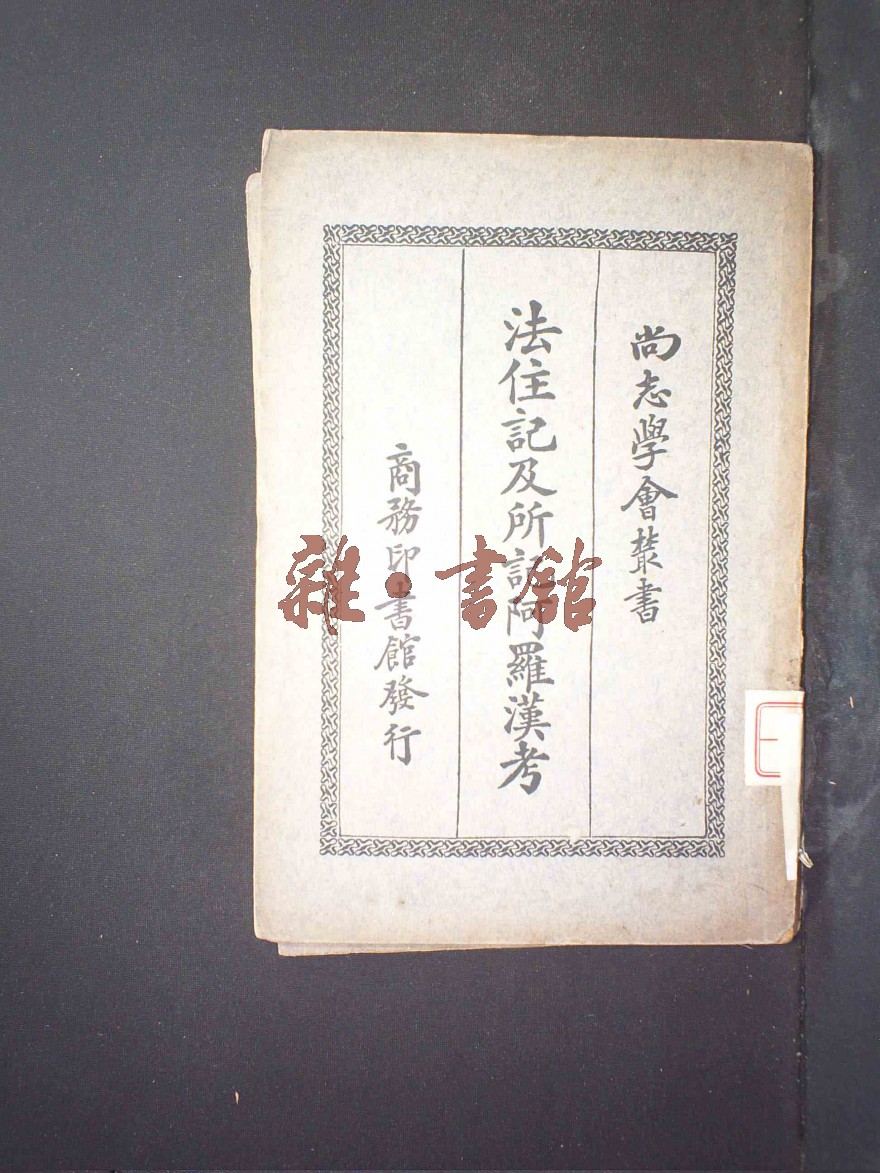 尚志學會叢書
法住記及所記阿羅漢考
商務印書館發行
雜·書館